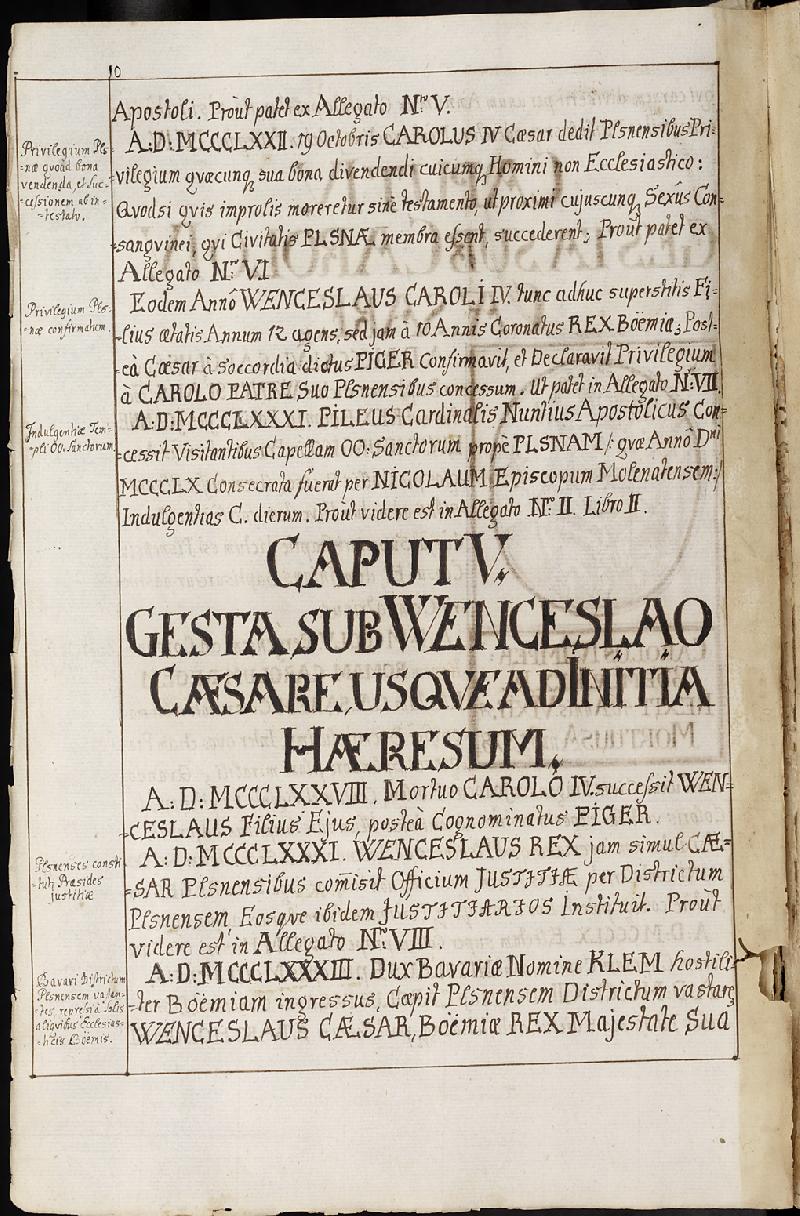 10
Apostoli. Proút patet ex Allegato Nrō V.
A.D.MCCCLXXII. 19 Octobris CAROLUS IV Cæsar dedit Plsnensibus Pri-
-vilegium qvæcunq sua bona divendendi cuicumq Homini non Ecclesiastico:
Qvodsi qvis improlis moreretur sine testamento, ut proximi cujuscunq Sexûs Con-
-sangvinei, qvi Civitatis PLSNÆ membra essent, succederent; Proút patet ex
Allegato Nrō VI
Eodem Annô WENCESLAUS CAROLI IV. tunc adhuc superstitis Fi-
-lius ætatis Annum 12 agens, sed jam à 10 Annis Coronatus REX Boëmiæ; Post-
-eà Cæsar à Soccordia dictus PIGER Confirmavit, et Declaravit Privilegium
à CAROLO PATRE Suo Plsnensibus concessum. Ut patet in Allegato Nrō VII
A.D:MCCCLXXXI. PILEUS Cardinalis Nuntius Apostolicus Con-
-cessit Visitantibus Capellam OO: Sanctorum propè PLSNAM /: qvæ Annô Dni
MCCCLX Consecrata fuerat per NICOLAUM Episcopum Molenatensem:/
Indulgentias C. dierum. Proút videre est in Allegato Nrō II. Libro II.
CAPUT V.
GESTA SUB WENCESLAO
CÆSARE, USQVE AD INITIA
HÆRESUM.
A:D:MCCCLXXVIII. Mortuo CAROLO IV. successit WEN-
-CESLAUS Filius Ejus, posteà Cognominatus PIGER.
A:D:MCCCLXXXI. WENCESLAUS REX jam simul CÆ-
-SAR Plsnensibus com̄isit Officium JUSTITIÆ per Districtum
Plsnensem, Eosqve ibidem JUSTITIARIOS Instituit. Proút
videre est in Allegato Nrō VIII.
A:D:MCCCLXXXIII. Dux Bavariæ Nomine KLEM hostili-
-ter Boëmiam ingressus, Cæpit Plsnensem Districtum vastare,
WENCESLAUS CÆSAR, Boëmiæ REX Majestate Sua
Privilegium Pls-
-næ quoad bona
vendenda, et suc-
-cessionem ab in-
-testato.
Privilegium Pls-
næ confirmatum.
Indulgentiæ Tem-
-pli OO. Sanctorum
Plsnenses consti-
-tuti Præsides
justitiæ
Bavari Districtum
Plsnensem vastan-
-tes, repressi
aliqvibus Ecclesias-
-ticis Boëmis.